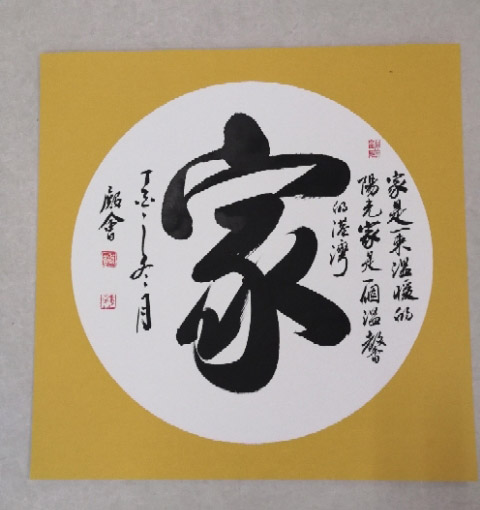 家是一束温暖的
陽光家是一個温馨
的港灣
家
丁酉之冬月